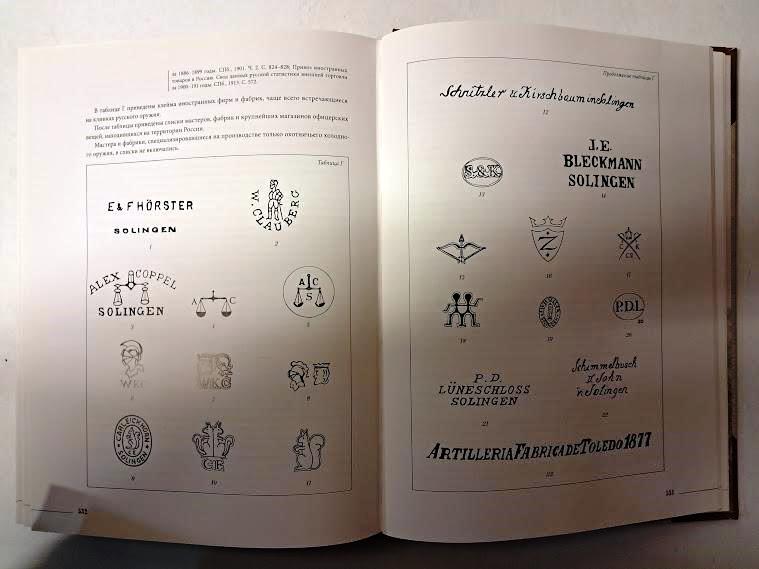 за 1886–1899 годы. СПб., 1901. Ч. 2. С. 824–828; Привоз иностранных
товаров в Россию. Свод данных русской статистики внешней торговли
за 1908–191 годы. СПб., 1913. С. 572.
В таблице Г приведены клейма иностранных фирм и фабрик, чаще всего встречающиеся
на клинках русского оружия.
После таблицы приведены списки мастеров, фабрик и крупнейших магазинов офицерских
вещей, находившихся на территории России.
Мастера и фабрики, специализировавшиеся на производстве только охотничьего холодно-
го оружия, в списки не включались.
Таблица Г
E & F HÖRSTER
SOLINGEN
1
W. CLAUBERG
2
ALEX COPPEL
SOLINGEN
3
A C
4
A C
S
5
WKC
6
WKC
7
8
CARL EICKHORN
SOLINGEN
9
CE
10
11
532
Продолжение таблицы Г
Schnitzler u. Kirschbaum in Solingen
12
S.&K
13
J.E.
BLECKMANN
SOLINGEN
14
15
Z
16
C K
17
18
19
P.D.L.
20
P.D.
LÜNESCHLOSS
SOLINGEN
21
Schimmelbusch
u Sohn
in Solingen
22
ARTILLERIA FABRICA DE TOLEDO 1877
533